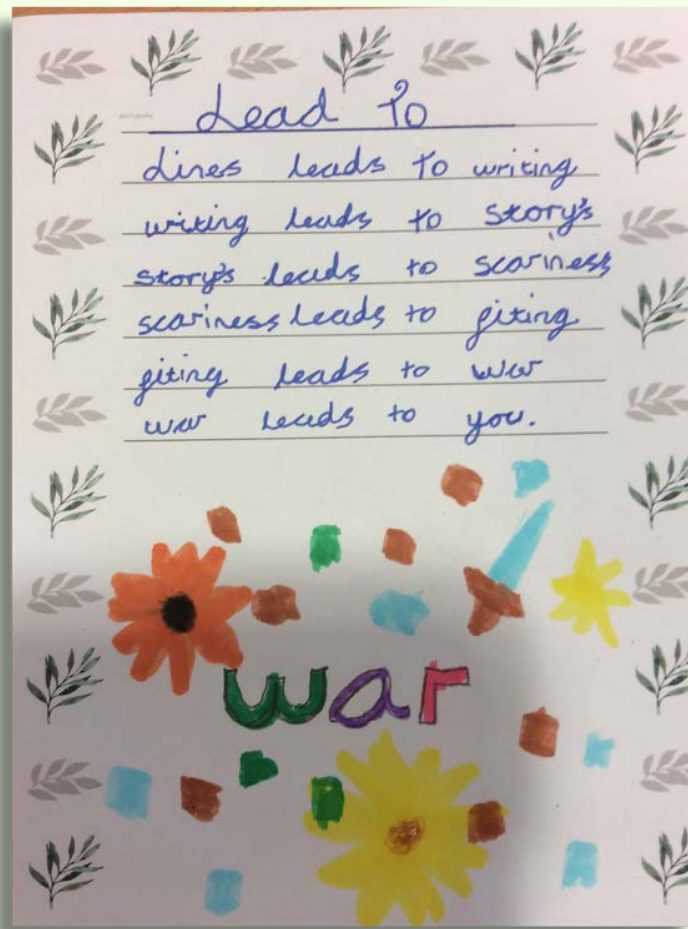 Lead To
Lines leads to writing
writing leads to story's
story's leads to scariness
scariness leads to fiting
fiting leads to war
war leads to you.
war